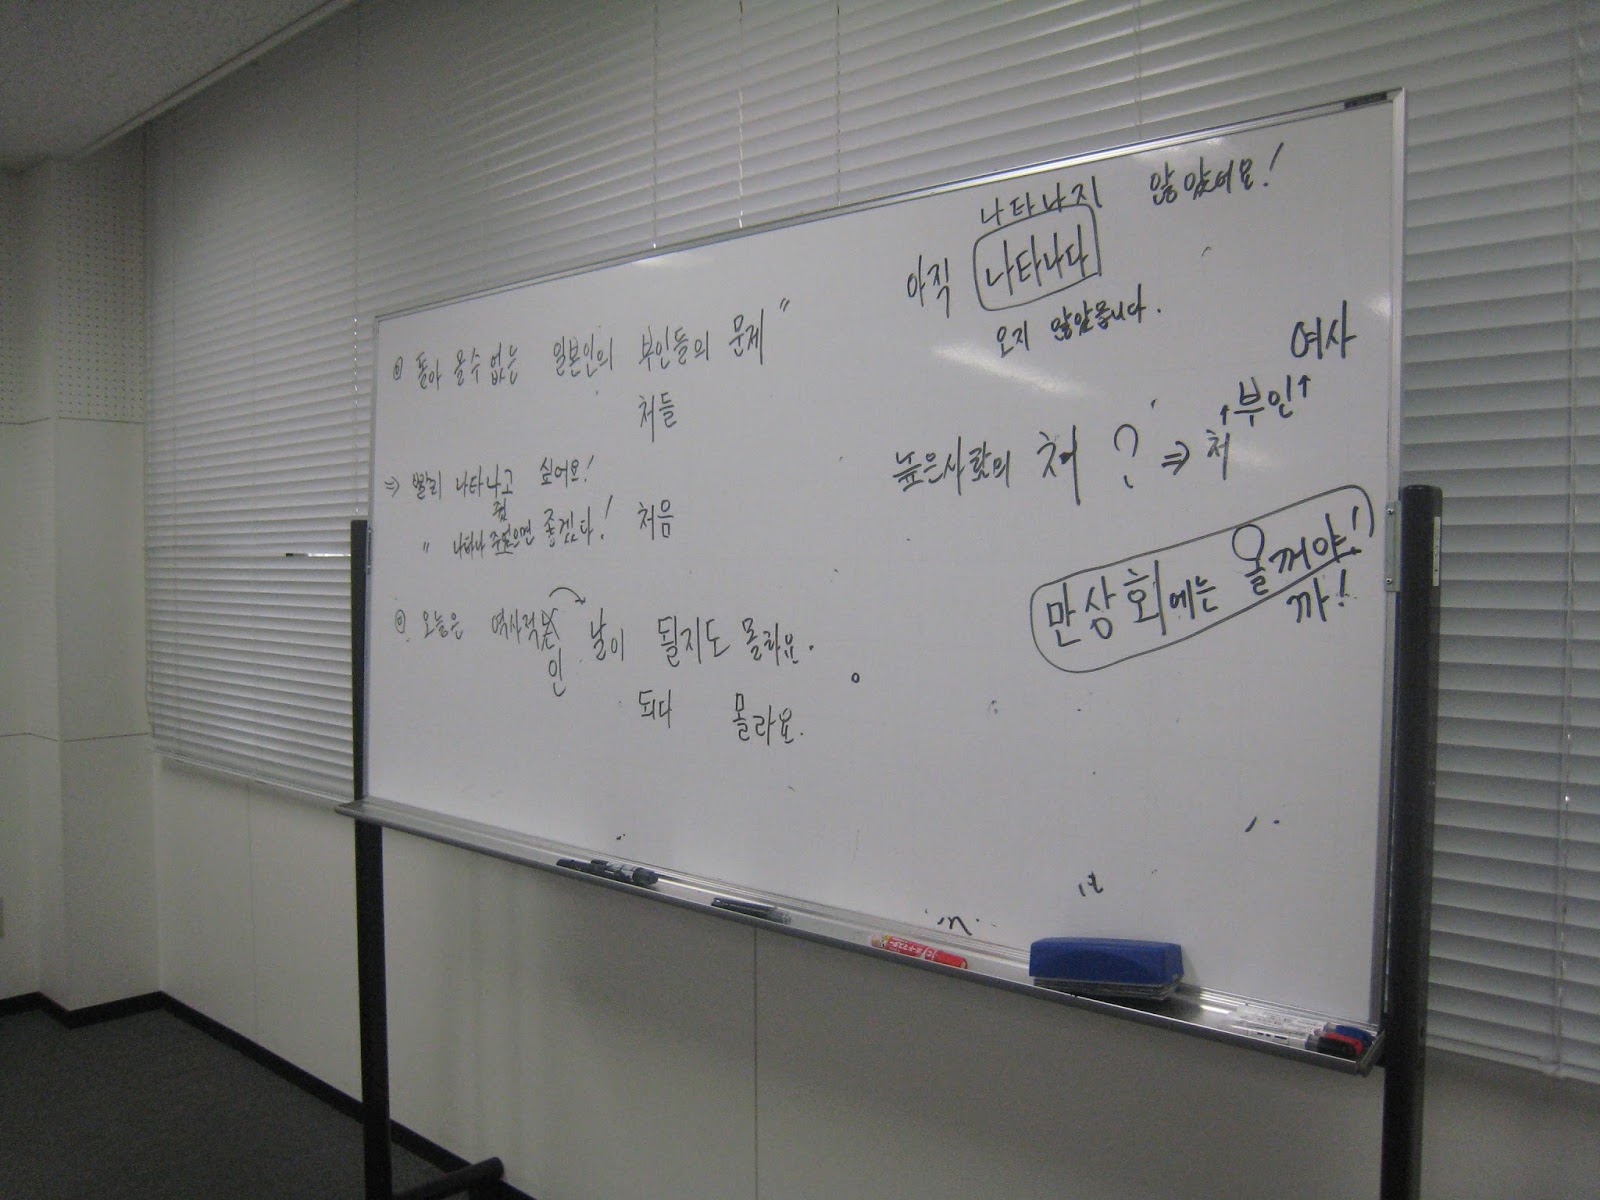 ◎ 돌아 올수 없는 일본인의 부인들의 문제"
처들
⇒ 빨리 나타나고 싶어요!
" 나타나 주었으면 좋겠다! 처음
◎ 오늘은 역사적 날이 될지도 몰라요.
인
되다 몰라요.
나타나지 않았어요!
아직 나타나다
오지 않았습니다.
여사
↑부인↑
높은사람의 처 ? ⇒ 처
만상회에는 올꺼야!
까!